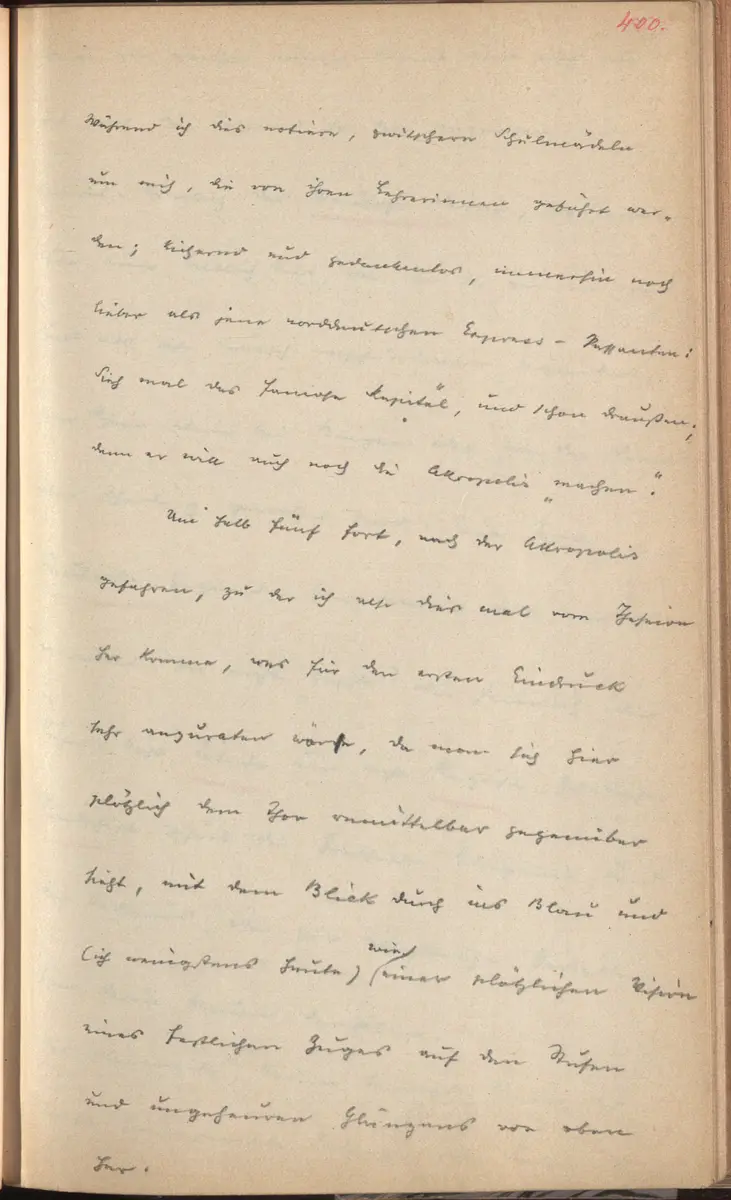 400.
Während ich dies notiere, zwitschern Schulmädeln
um mich, die von ihren Lehrerinnen geführt wer-
den; kichernd und gedankenlos, immerhin noch
lieber als jene norddeutschen Express-Passanten:
Sieh mal das famose Kapitäl", und schon draußen;
denn er will auch noch die Akropolis „machen".
Um halb fünf fort, nach der Akropolis
gefahren, zu der ich also dies mal vom Theseion
her komme, was für den ersten Eindruck
sehr anzuraten wäre, da man sich hier
plötzlich dem Thor unmittelbar gegenüber
sieht, mit dem Blick durch ins Blau und
(ich wenigstens heute) wie einer plötzlichen Vision
eines festlichen Zuges auf den Stufen
und ungeheuren Glänzens von oben
her.